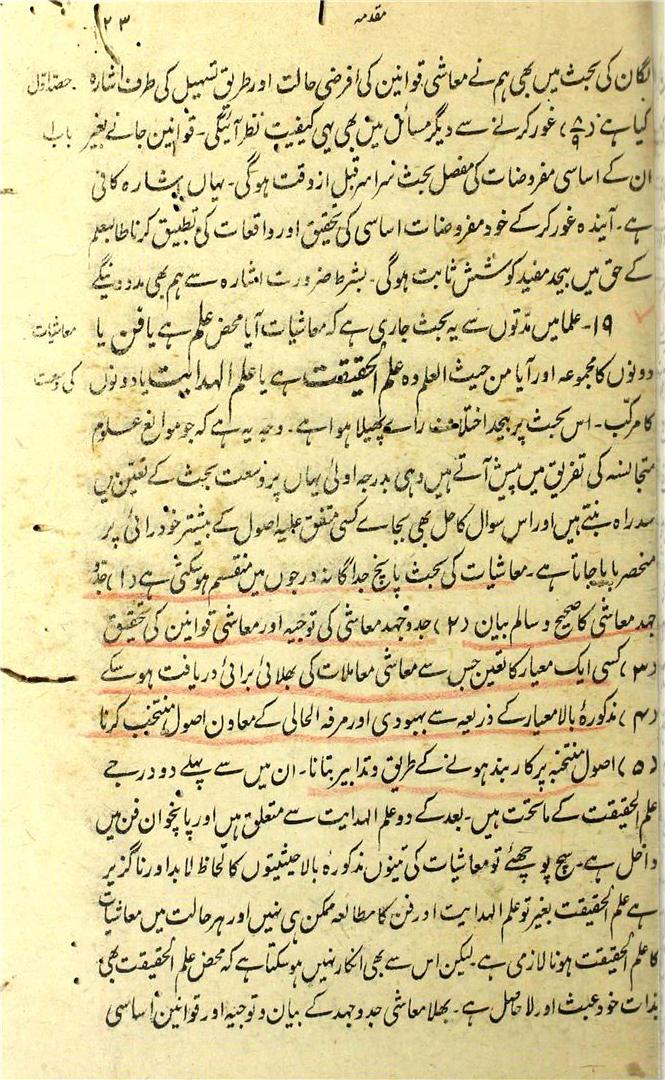 مقدمہ
۲۳
لگان کی بحث میں بھی ہم نے معاشی قوانین کی فرضی حالت اور طریق تسہیل کی طرف اشارہ
حصہ اول
کیا ہے ( ) غور کرنے سے دیگر مسائل میں بھی یہی کیفیت نظر آئیگی۔ قوانین جانے بغیر
باب
ان کے اساسی مفروضات کی مفصل بحث سراسر قبل از وقت ہوگی۔ یہاں اشارہ کافی
ہے۔ آیندہ غور کرکے خود مفروضات اساسی کی تحقیق اور واقعات کی تطبیق کرنا طالبعلم
کے حق میں بیحد مفید کوشش ثابت ہوگی۔ بشرط ضرورت اشارہ سے ہم بھی مدد دینگے
۱۹۔ علما میں مدّتوں سے یہ بحث جاری ہے کہ معاشیات آیا محض علم ہے یا فن یا
معاشیات
دونوں کا مجموعہ اور آیا من حیث العلم وہ علم الحقیقت ہے یا علم الہدایت یا دونوں
کی وسعت
کا مرکب۔ اس بحث پر بیحد اختلاف رائے پھیلا ہوا ہے۔ وجہ یہ ہے کہ جو موانع علوم
متجانسہ کی تفریق میں پیش آتے ہیں وہی بدرجہ اولیٰ یہاں پر وسعت بحث کے تعین میں
سدراہ بنتے ہیں اور اس سوال کا حل بھی بجائے کسی متفق علیہ اصول کے بیشتر خود رائی پر
منحصر پایا جاتا ہے۔ معاشیات کی بحث پانچ جداگانہ درجوں میں منقسم ہوسکتی ہے (۱) جدو
جہد معاشی کا صحیح و سالم بیان (۲) جدوجہد معاشی کی توجیہ اور معاشی قوانین کی تحقیق
(۳) کسی ایک معیار کا تعین جس سے معاشی معاملات کی بھلائی برائی دریافت ہوسکے
(۴) مذکورۂ بالا معیار کے ذریعہ سے بہبودی اور مرفہ الحالی کے معاون اصول منتخب کرنا
(۵) اصول منتخبہ پر کاربند ہونے کے طریق و تدابیر بتانا۔ ان میں سے پہلے دو درجے
علم الحقیقت کے ماتحت ہیں۔ بعد کے دو علم الہدایت سے متعلق ہیں اور پانچواں فن میں
داخل ہے۔ سچ پوچھئے تو معاشیات کی تینوں مذکورہ بالا حیثیتوں کا لحاظ لابد اور ناگزیر
ہے علم الحقیقت بغیر تو علم الہدایت اور فن کا مطالعہ ممکن ہی نہیں اور ہر حالت میں معاشیات
کا علم الحقیقت ہونا لازمی ہے۔ لیکن اس سے بھی انکار نہیں ہوسکتا ہے کہ محض علم الحقیقت بھی
بذات خود عبث اور لاحاصل ہے۔ بھلا معاشی جدوجہد کے بیان و توجیہ اور قوانین اساسی